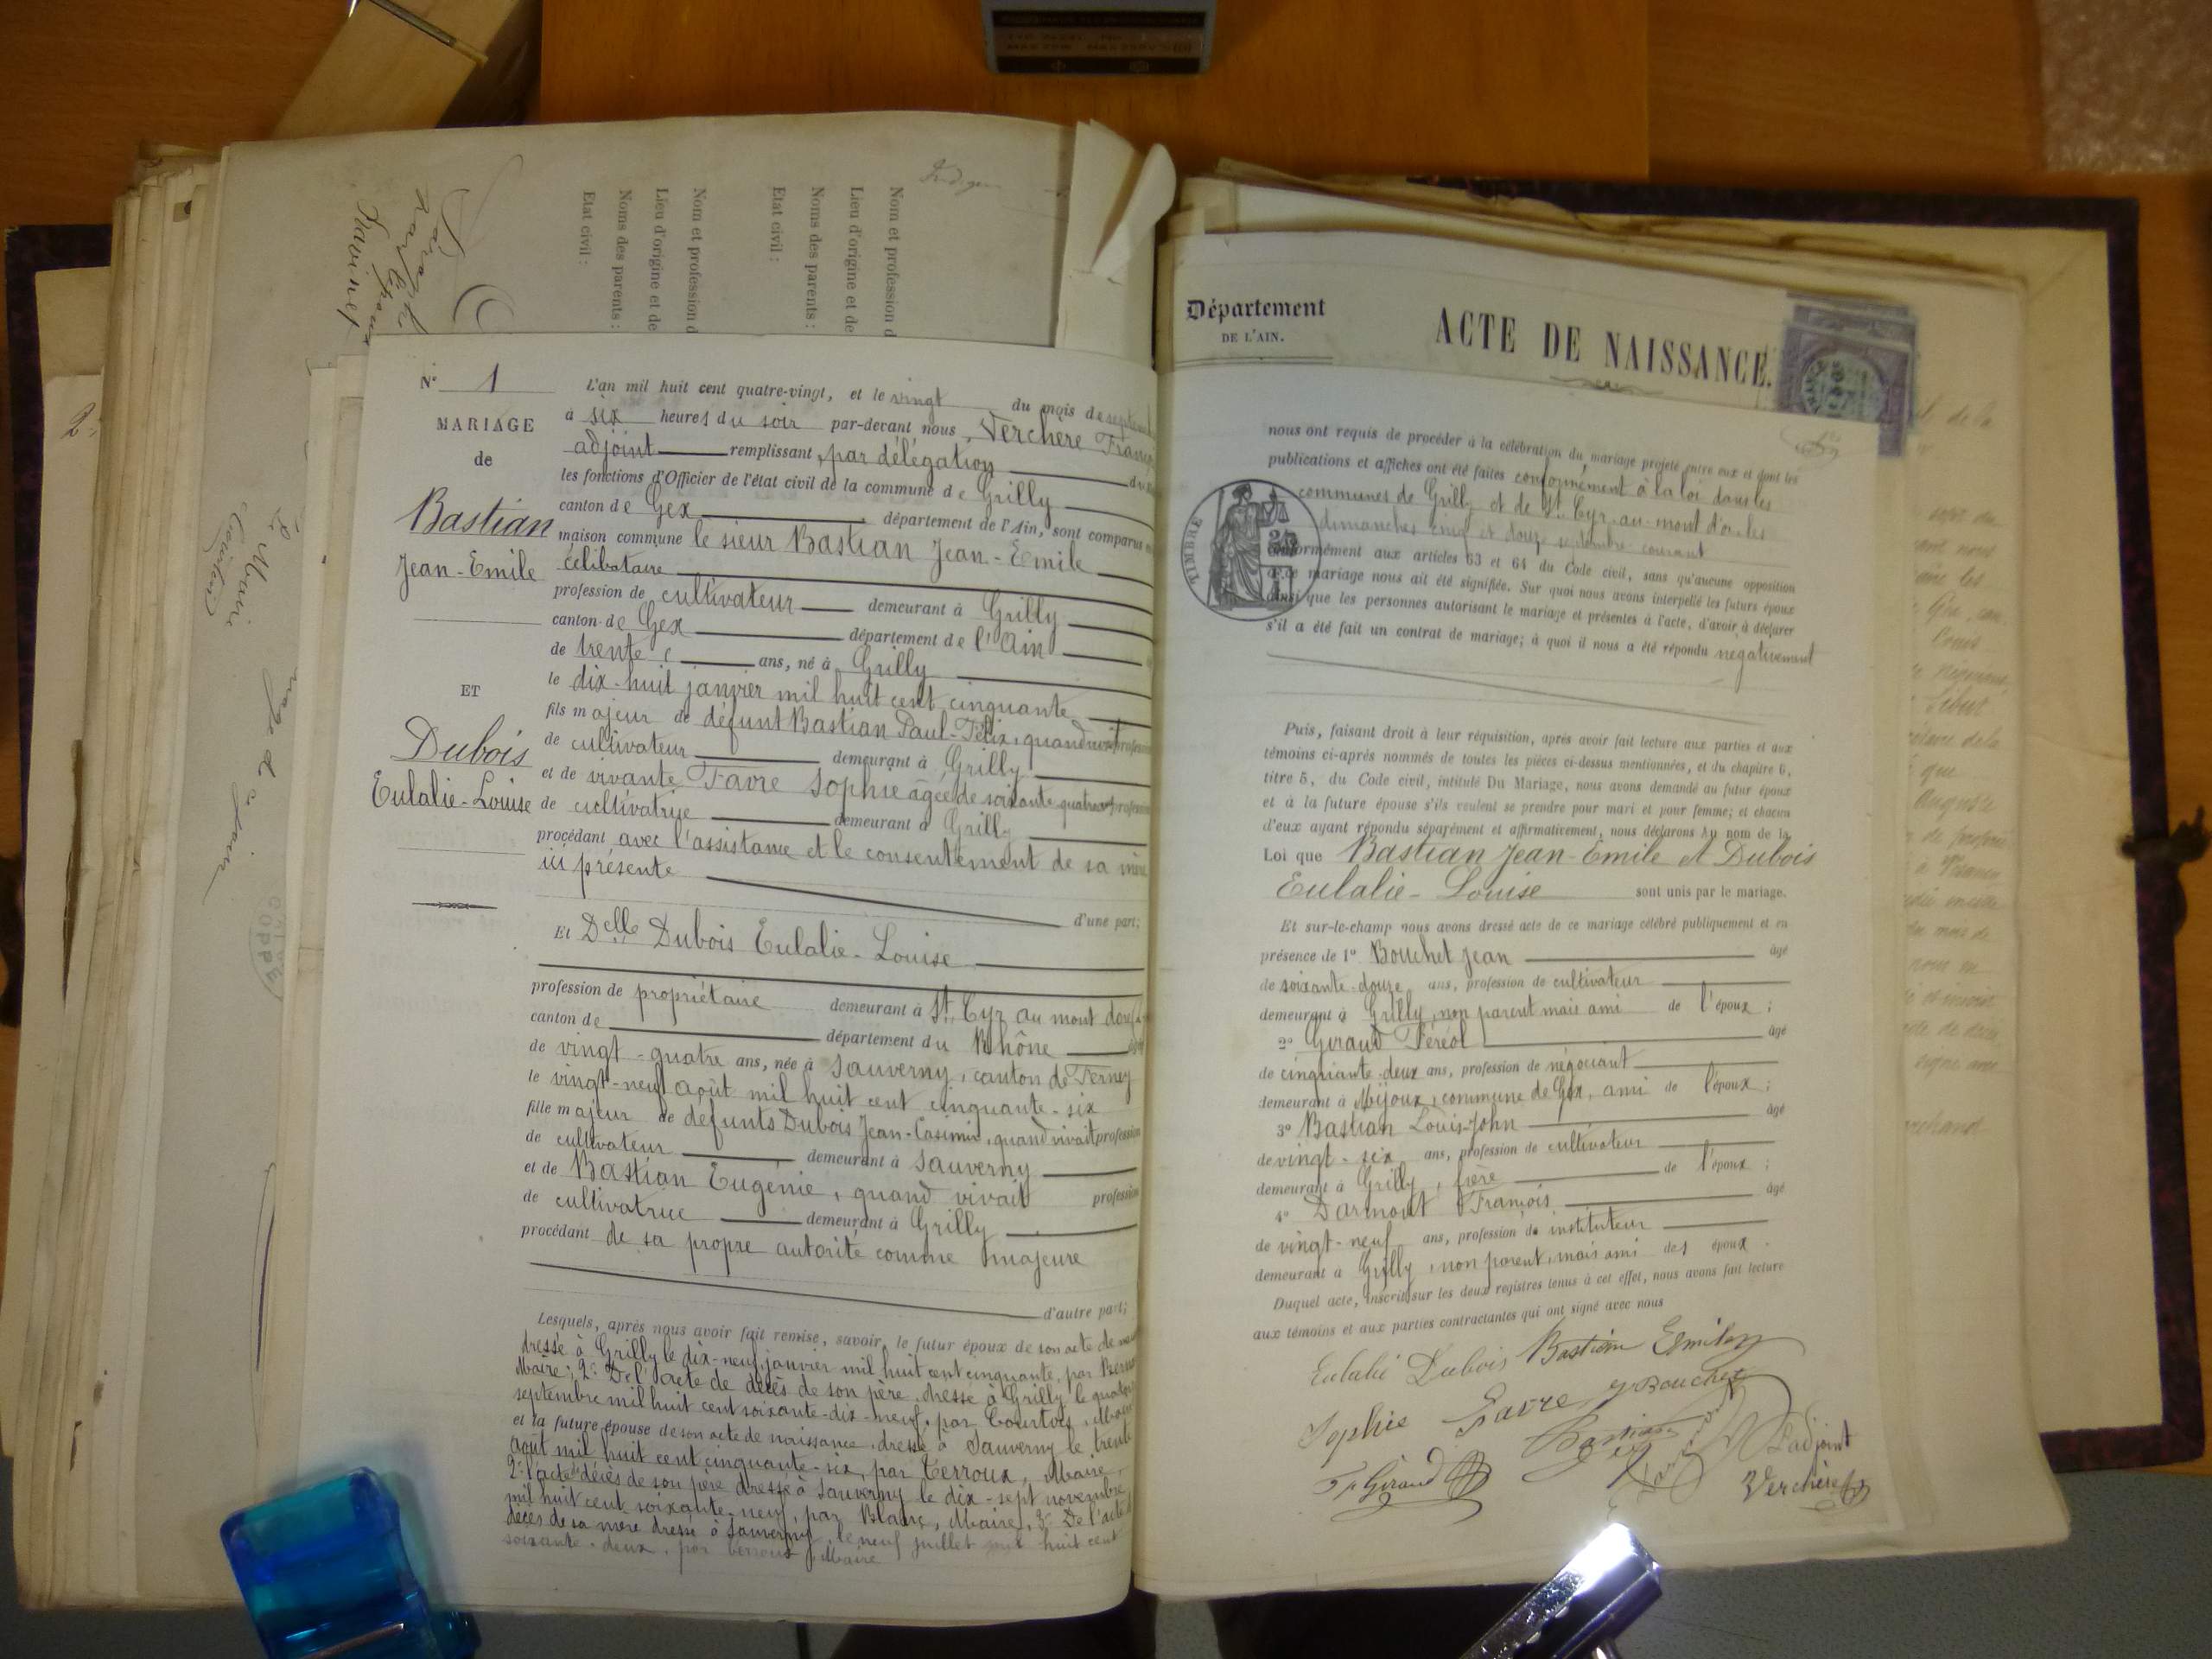 Nom et profession d
Lieu d'origine et de
Noms des parents :
Etat civil :
Nom et profession d
Lieu d'origine et de
Noms des parents :
Etat civil :
N° 1
MARIAGE
de
Bastian
Jean-Emile
ET
Dubois
Eulalie-Louise
L'an mil huit cent quatre-vingt, et le vingt du mois de
à six heures du soir par-devant nous Verchère
adjoint remplissant, par délégation
les fonctions d'Officier de l'état civil de la commune de Grilly
canton de Gex département de l'Ain, sont comparus
maison commune le sieur Bastian Jean-Emile
célibataire
profession de cultivateur demeurant à Grilly
canton de Gex département de l'Ain
de trente ans, né à Grilly
le dix-huit janvier mil huit cent cinquante
fils majeur de défunt Bastian Paul-Félix, quand vivait profession
de cultivateur demeurant à Grilly
et de vivante Favre Sophie âgée de soixante-quatre profession
de cultivatrice demeurant à Grilly
procédant avec l'assistance et le consentement de sa
ici présente
d'une part;
Et Delle Dubois Eulalie-Louise
profession de propriétaire demeurant à St Cyr au mont
canton de département du Rhône
de vingt-quatre ans, née à Sauverny, canton de Ferney
le vingt-neuf août mil huit cent cinquante-six
fille majeur de défunts Dubois Jean-Casimir, quand vivait profession
de cultivateur demeurant à Sauverny
et de Bastian Eugénie, quand vivait profession
de cultivatrice demeurant à Grilly
procédant de sa propre autorité comme majeure
d'autre part;
Lesquels, après nous avoir fait remise, savoir, le futur époux de son acte de
dressé à Grilly le dix-neuf janvier mil huit cent cinquante, par
Maire; 2° De l'acte de décès de son père, dressé à Grilly le
septembre mil huit cent soixante-dix-neuf, par Courtois,
et la future épouse de son acte de naissance, dressé à Sauverny le trente
août mil huit cent cinquante-six, par Terroux, Maire,
2° l'acte de décès de son père dressé à Sauverny le dix-sept novembre
mil huit cent soixante-neuf, par Blanc, Maire, 3° De l'acte
décès de sa mère dressé à Sauverny, le neuf juillet mil huit cent
soixante-deux, par Terroux Maire
Département
DE L'AIN.
ACTE DE NAISSANCE.
TIMBRE
nous ont requis de procéder à la célébration du mariage projeté entre eux et dont les
publications et affiches ont été faites conformément à la loi dans les
communes de Grilly et de St Cyr-au-mont d'or les
dimanches cinq et douze septembre courant
conformément aux articles 63 et 64 du Code civil, sans qu'aucune opposition
à ce mariage nous ait été signifiée. Sur quoi nous avons interpellé les futurs époux
ainsi que les personnes autorisant le mariage et présentes à l'acte, d'avoir à déclarer
s'il a été fait un contrat de mariage; à quoi il nous a été répondu négativement
Puis, faisant droit à leur réquisition, après avoir fait lecture aux parties et aux
témoins ci-après nommés de toutes les pièces ci-dessus mentionnées, et du chapitre 6,
titre 5, du Code civil, intitulé Du Mariage, nous avons demandé au futur époux
et à la future épouse s'ils veulent se prendre pour mari et pour femme; et chacun
d'eux ayant répondu séparément et affirmativement, nous déclarons au nom de la
Loi que Bastian Jean-Emile et Dubois
Eulalie-Louise sont unis par le mariage.
Et sur-le-champ nous avons dressé acte de ce mariage célébré publiquement et en
présence de 1° Bouchet Jean âgé
de soixante-douze ans, profession de cultivateur
demeurant à Grilly, non parent mais ami de l'époux;
2° Giraud Féréol âgé
de cinquante-deux ans, profession de négociant
demeurant à Mijoux, commune de Gex, ami de l'époux;
3° Bastian Louis-John âgé
de vingt-six ans, profession de cultivateur
demeurant à Grilly, frère de l'époux;
4° Darmont François âgé
de vingt-neuf ans, profession de instituteur
demeurant à Grilly, non parent, mais ami des époux.
Duquel acte, inscrit sur les deux registres tenus à cet effet, nous avons fait lecture
aux témoins et aux parties contractantes qui ont signé avec nous
Eulalie Dubois Bastian Emile
Sophie Favre J Bouchet
Bastian
L'adjoint
Fr Giraud
Verchère